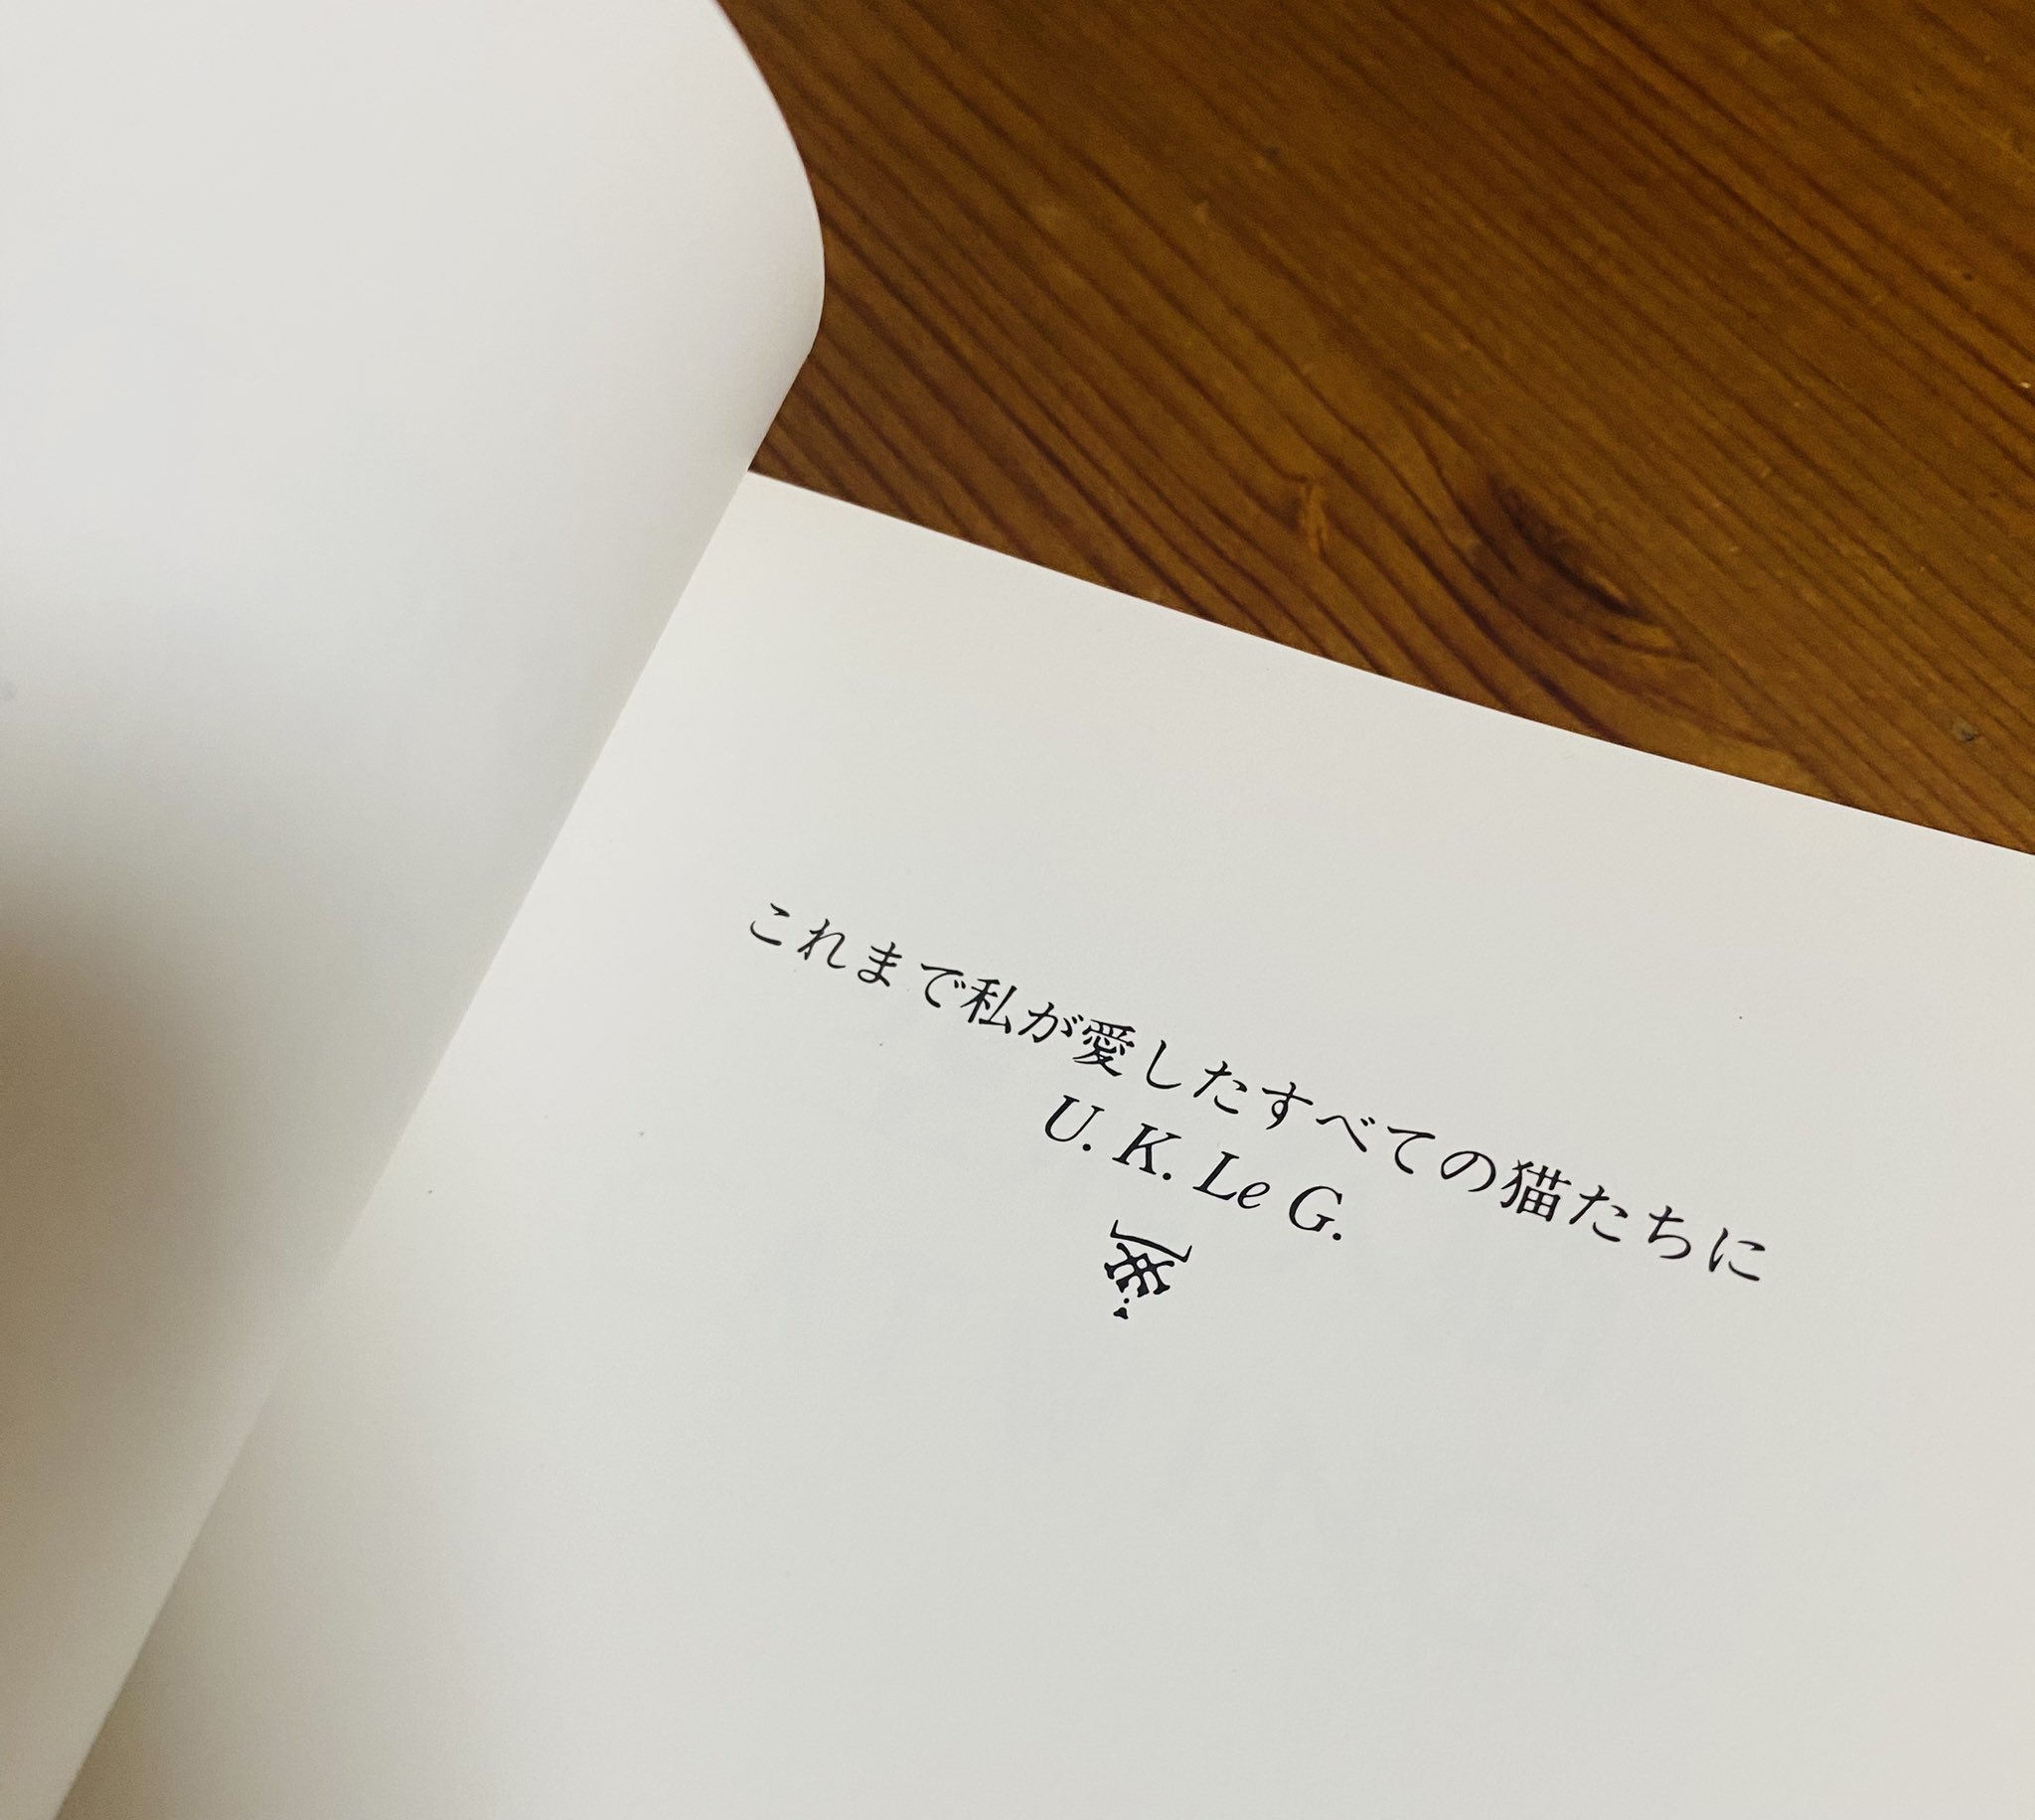 これまで私が愛したすべての猫たちに
U. K. Le G.